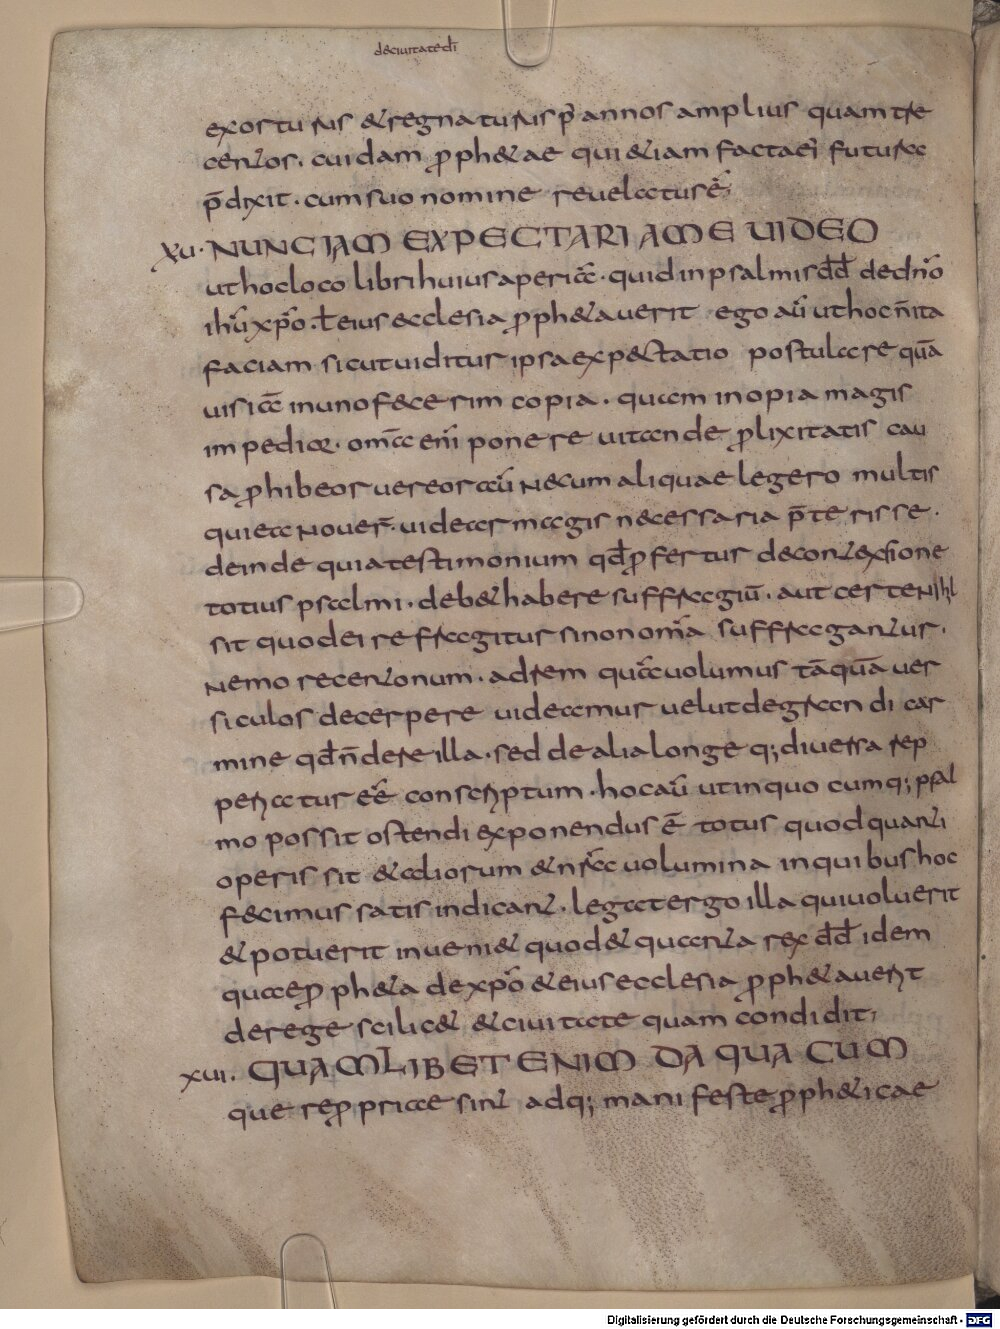 deciuitatedī
exorturus & regnaturus p̄ annos amplius quam tre
centos. cuidam ꝓph&ae qui &iam factaeī futurae
p̄dixit. cum suo nomine reuelaturē;
xu. NUNC IAM EXPECTARI A ME UIDEO
ut hoc loco libri huius aperiā. quid in psalmis dd̄ de dn̄o
ihū xp̄o. ł eius ecclesia ꝓph&auerit ego aū ut hoc n̄ ita
faciam sicut uiditur ipsa exp&tatio postulare quā
uis iā in uno fecerim copia. quam inopia magis
impedior. om̄a eni ponere uitande ꝓlixitatis cau
sa ꝓhibeor uereor aū ne cum aliquae legero multis
qui ea nouer̄. uidear magis necessaria p̄terisse.
deinde quia testimonium qd̄ ꝓfertur de contextione
totius psalmi. deb& habere suffragiū. aut certe nihl
sit quod ei refragitur si non om̄a suffragantur.
nemo recentonum. ad rem quā uolumus tāquā uer
siculos decerpere uideamur uelut de grandi car
mine qd̄ n̄ de re illa. sed de alia longeq; diuersa rep
periatur eē conscriptum. hoc aū ut in quocumq; psal
mo possit ostendi exponendus ē totus quod quanti
operis sit & aliorum & nr̄a uolumina in quibus hoc
fecimus satis indicant. legat ergo illa qui uoluerit
& potuerit inueni& quod & quanta rex dd̄ idem
quae ꝓph&a de xp̄o & eius ecclesia ꝓph&auerit
de rege scilic& & ciuitate quam condidit;
xui. QUAMLIBET ENIM DA QUA CUM
que reꝓppriae sint adq; manifeste ꝓph&icae
Digitalisierung gefördert durch die Deutsche Forschungsgemeinschaft - DFG